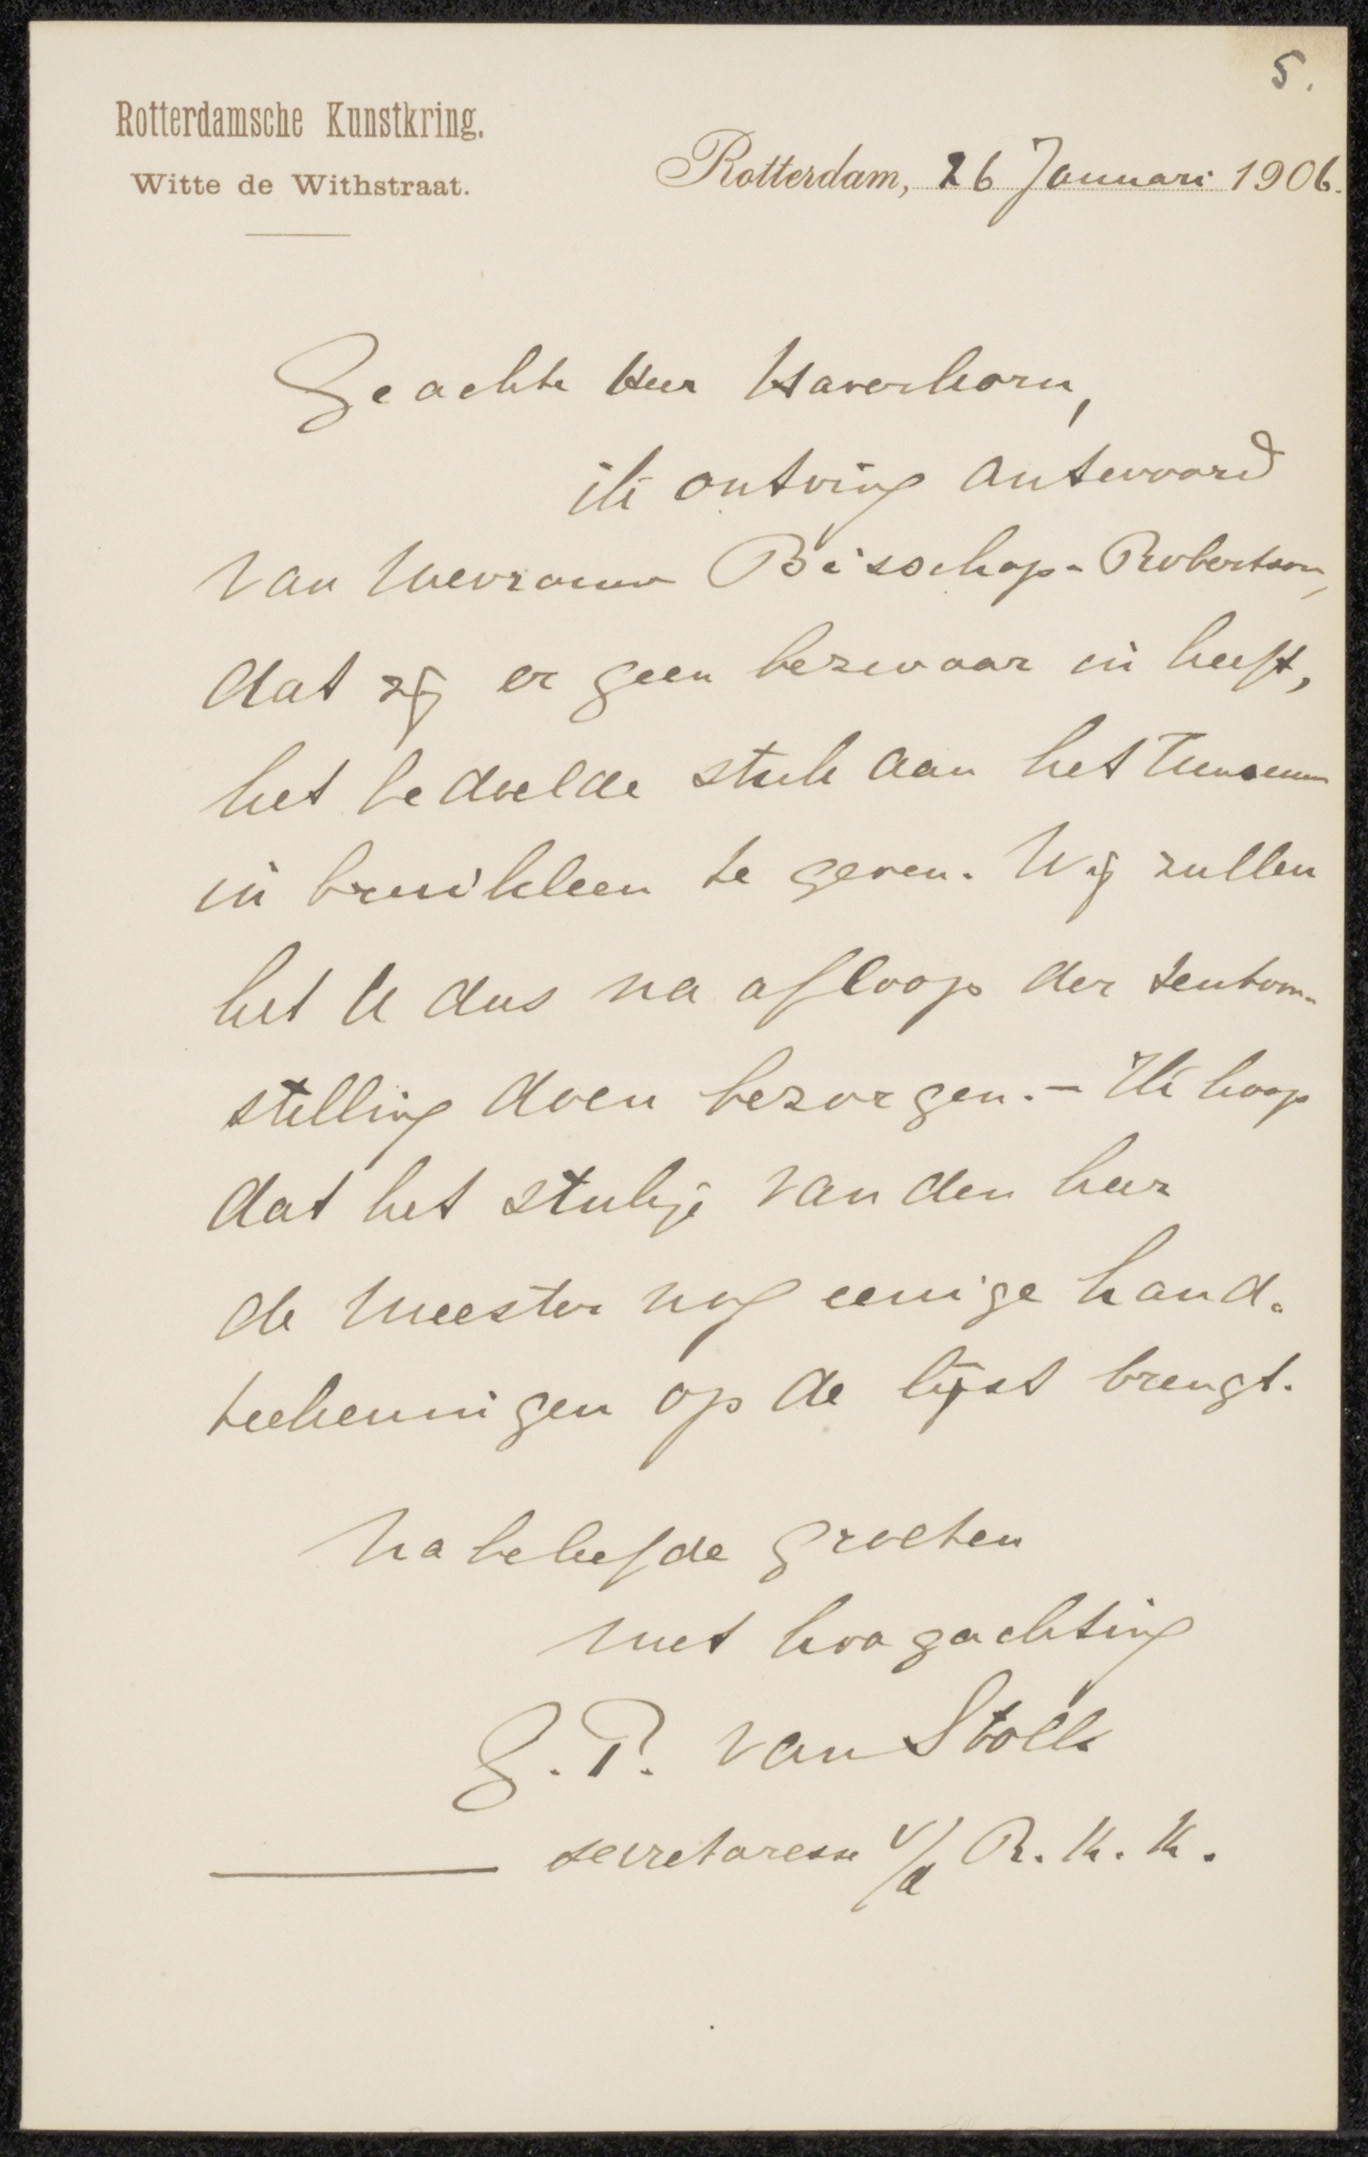 5.
Rotterdamsche Kunstkring.
Witte de Withstraat.
Rotterdam, 26 Januari 1906.
Geachte Heer Haverkorn,
ik ontving antwoord
van Mevrouw Bisschop-Robertson,
dat zij er geen bezwaar in heeft,
het bedoelde stuk aan het Museum
in bruikleen te geven. Wij zullen
het U dus na afloop der tentoon-
stelling doen bezorgen. – Ik hoop
dat het stukje van den heer
de Meester nog eenige hand-
teekeningen op de lijst brengt.
Na beleefde groeten
met hoogachting
G. P. van Stolk
secretaresse v/d R. K. K.